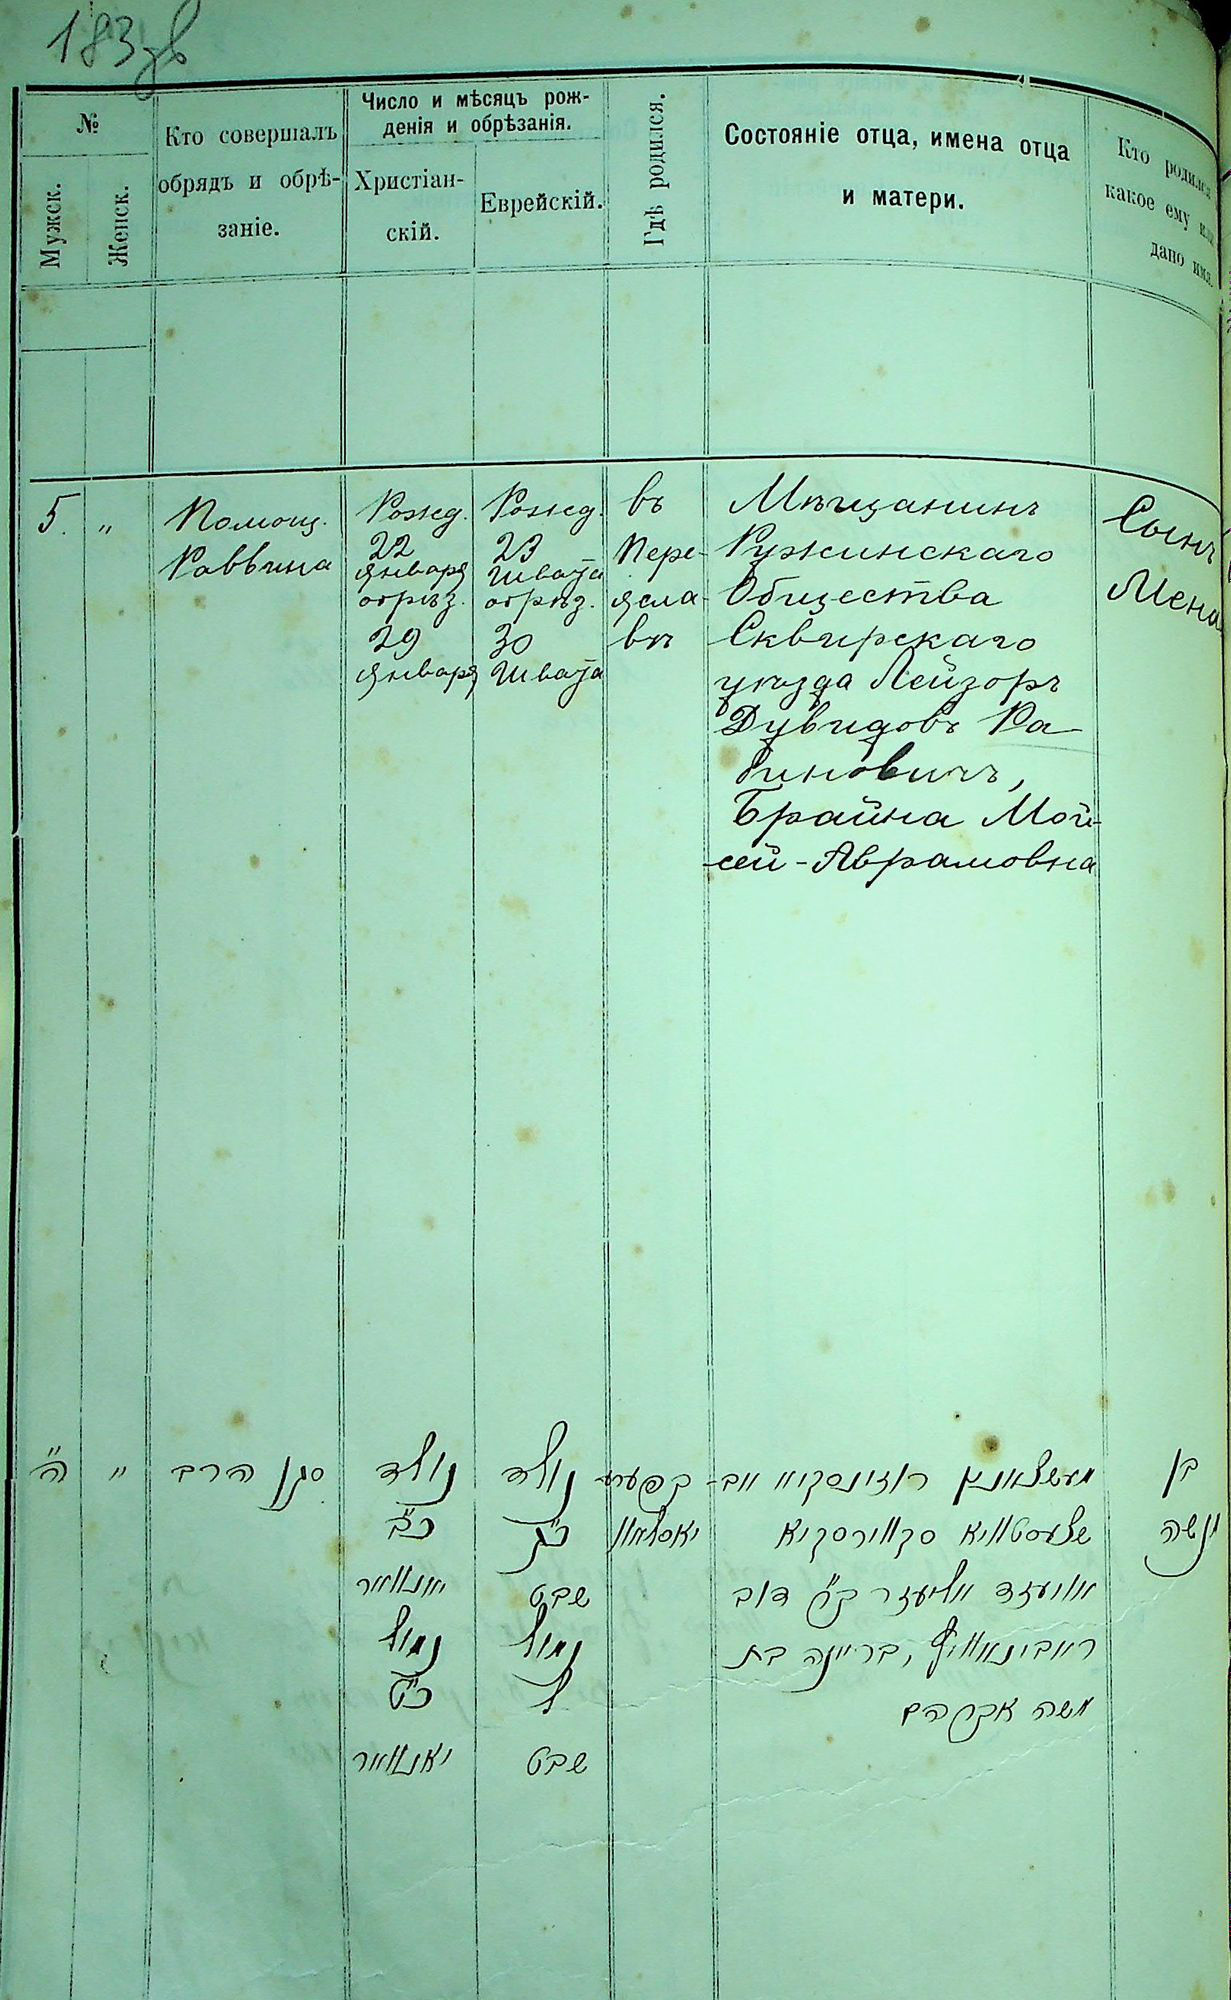 183 зв
№
Мужск.
Женск.
Кто совершалъ
обрядъ и обрѣ-
заніе.
Число и мѣсяцъ рож-
денія и обрѣзанія.
Христіан-
скій.
Еврейскій.
Гдѣ родился.
Состояніе отца, имена отца
и матери.
Кто родился
какое ему или
дано имя.
5. "
Помощ.
Раввина
Рожд.
22
января
обрѣз.
29
января
Рожд.
23
Швата
обрѣз.
30
Швата
въ
Пере-
ясла-
вѣ
Мѣщанинъ
Ружинскаго
Общества
Сквирскаго
уѣзда Лейзоръ
Дувидовъ Ра
биновичъ,
Брайна Мой-
сей-Аврамовна
Сынъ
Мена
ה" "
סגן הרב
נולד
כ"ב
יאנוואר
נמול
כ"ט
יאנוואר
נולד
כ"ג
שבט
נמול
ל
שבט
יאסלאוו
סקווירסקיא
אליעזר דוב
ראבינאוויץ, בריינה בת
משה אברהם
בן
מנשה